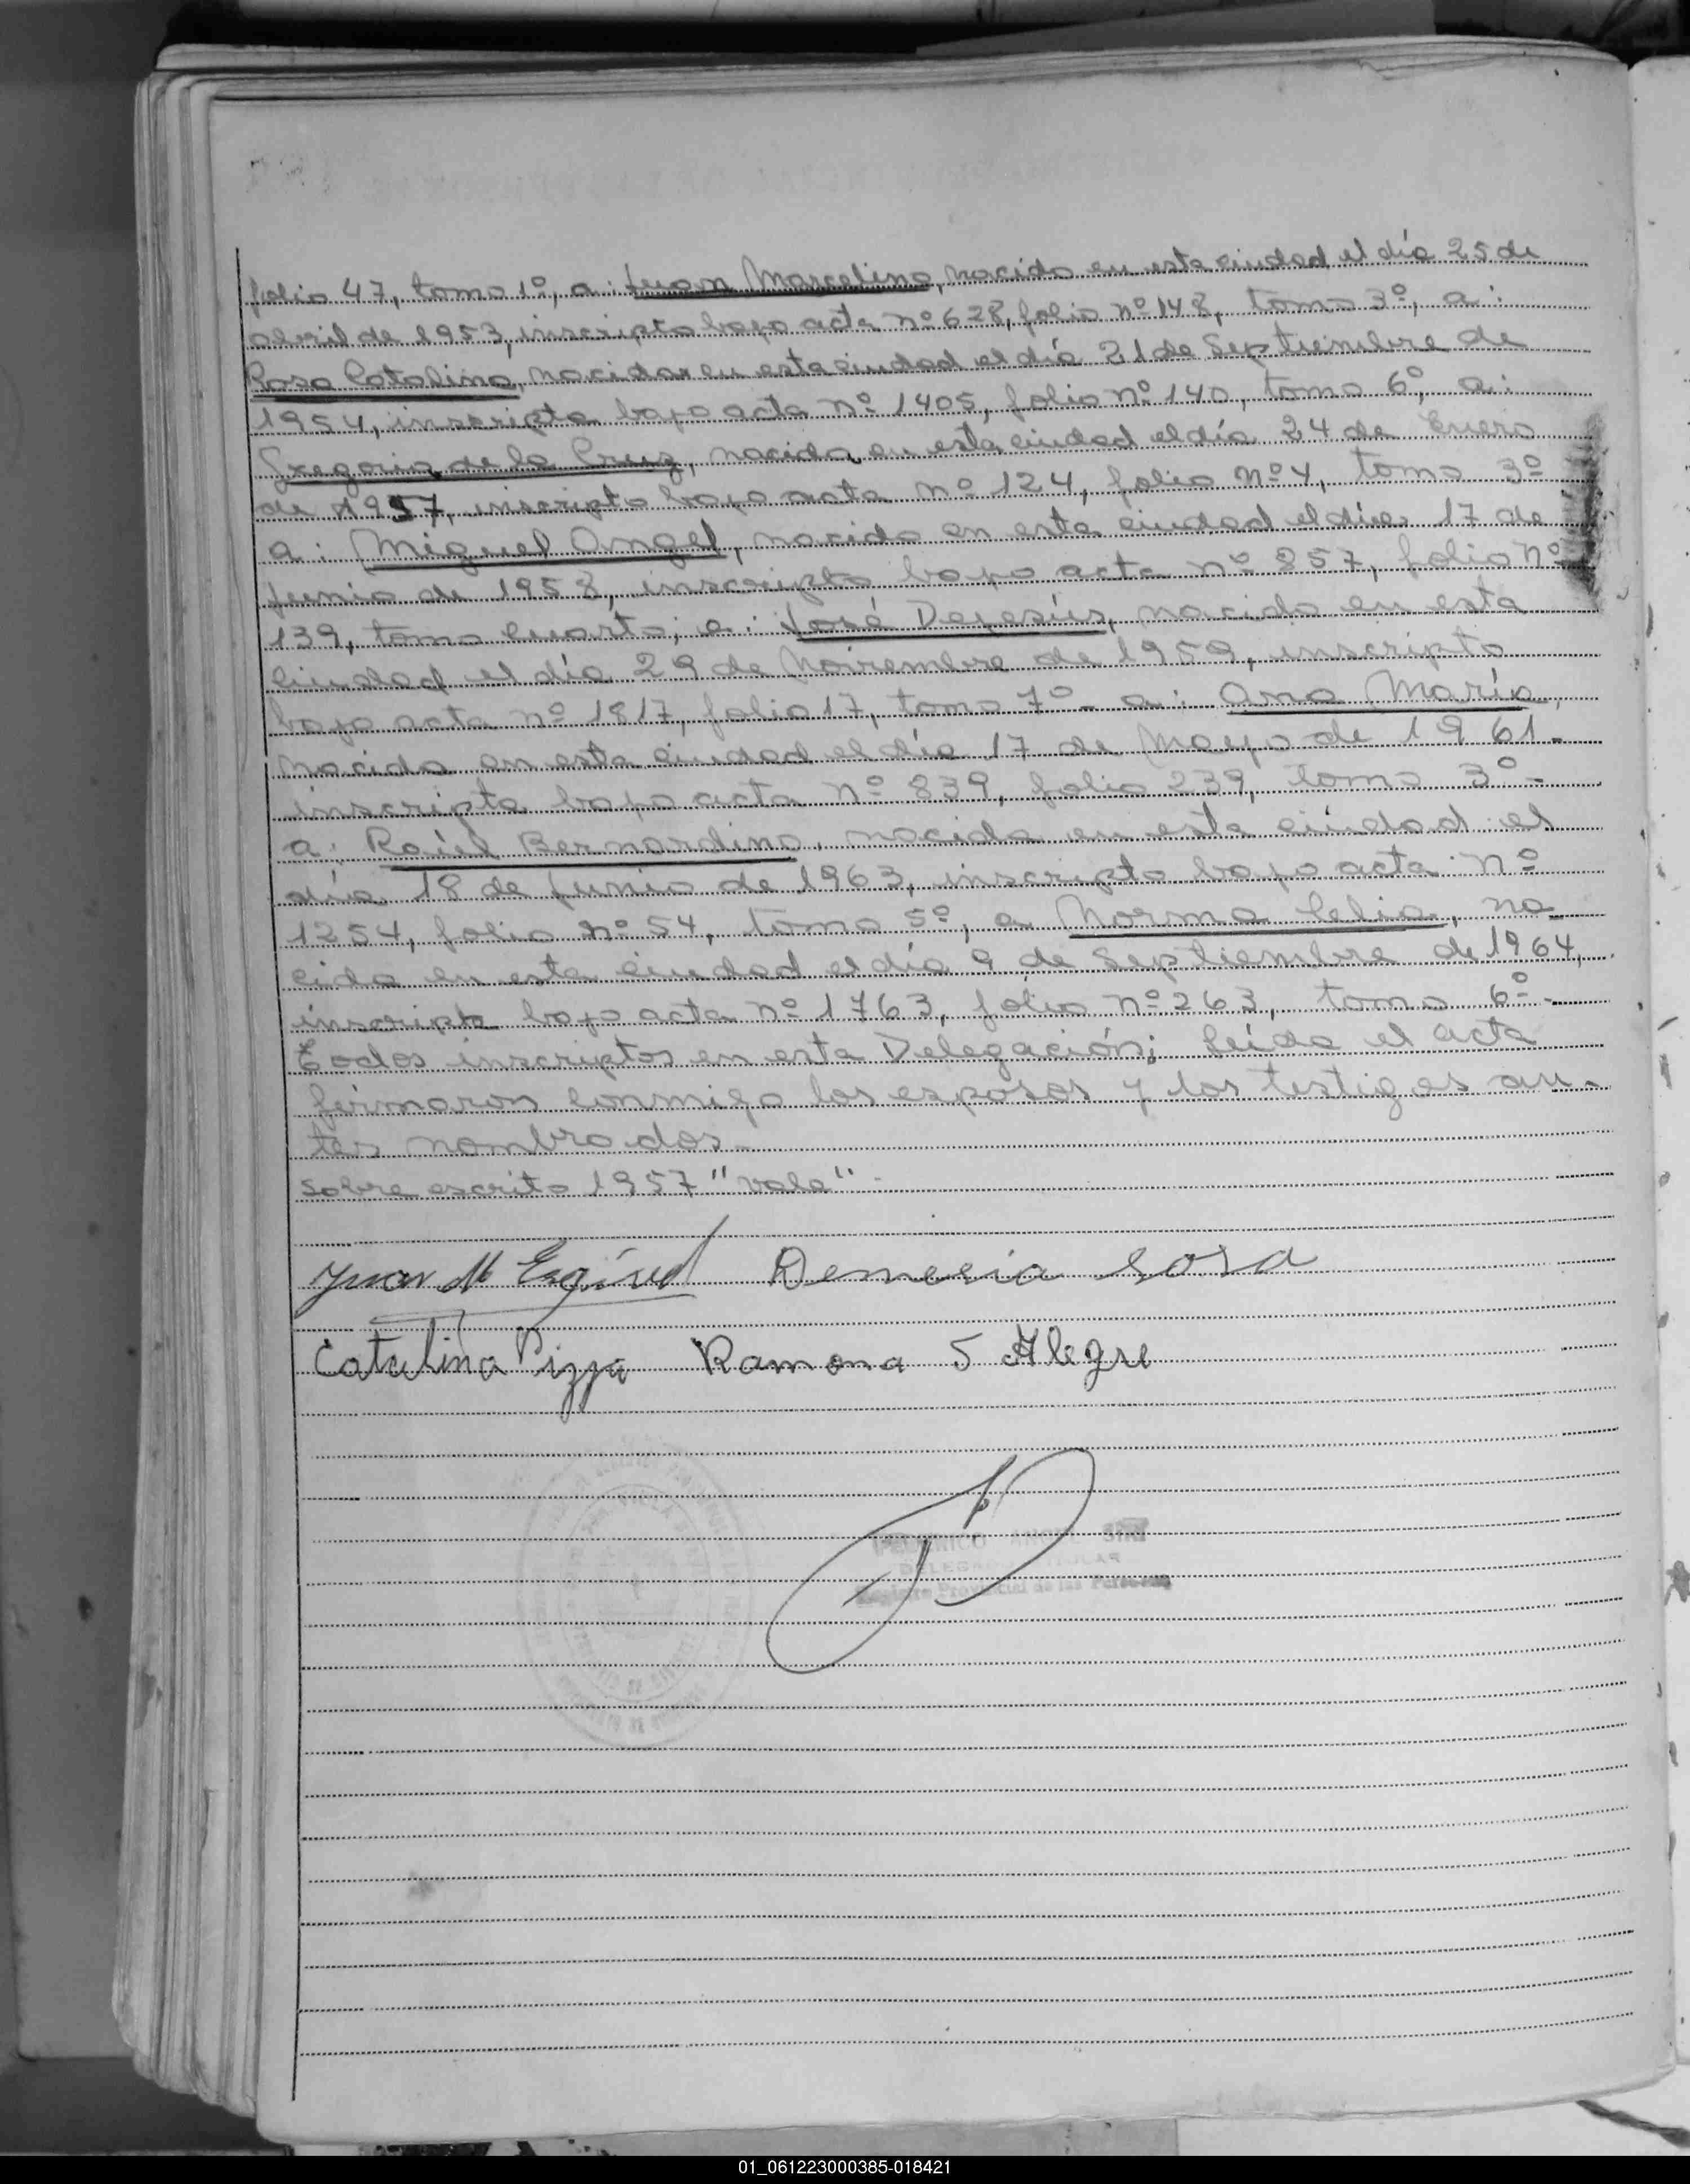 folio 47, tomo 1º, a: Juan Marcelino, nacido en esta ciudad el día 25 de
abril de 1953, inscripto bajo acta nº 628, folio nº 148, tomo 3º, a:
Rosa Catalina, nacida en esta ciudad el día 21 de Septiembre de
1954, inscripta bajo acta nº 1405, folio nº 140, tomo 6º, a:
Gregoria de la Cruz, nacida en esta ciudad el día 24 de Enero
de 1957, inscripta bajo acta nº 124, folio nº 4, tomo 3º
a: Miguel Angel, nacido en esta ciudad el día 17 de
Junio de 1958, inscripto bajo acta nº 857, folio nº
139, tomo cuarto; a: José Dejesús, nacido en esta
ciudad el día 29 de Noviembre de 1959, inscripto
bajo acta nº 1817, folio 17, tomo 7º- a: Ana María,
nacida en esta ciudad el día 17 de Mayo de 1961.-
inscripta bajo acta nº 839, folio 239, tomo 3º-
a: Raúl Bernardino, nacido en esta ciudad el
día 18 de Junio de 1963, inscripto bajo acta nº
1254, folio nº 54, tomo 5º, a Norma Celia, na-
cida en esta ciudad el día 9 de Septiembre de 1964,
inscripta bajo acta nº 1763, folio nº 263, tomo 6º-
Todos inscriptos en esta Delegación; Leída el acta
firmaron conmigo los esposos y los testigos an-
tes nombrados.-
Sobre escrito 1957 "vale".-
Juan M Esquivel Demecia Sosa
Catalina Pizza Ramona S Alegre
FEDERICO ANGEL
DELEGADO TITULAR
Registro Provincial de las Personas
01_061223000385-018421